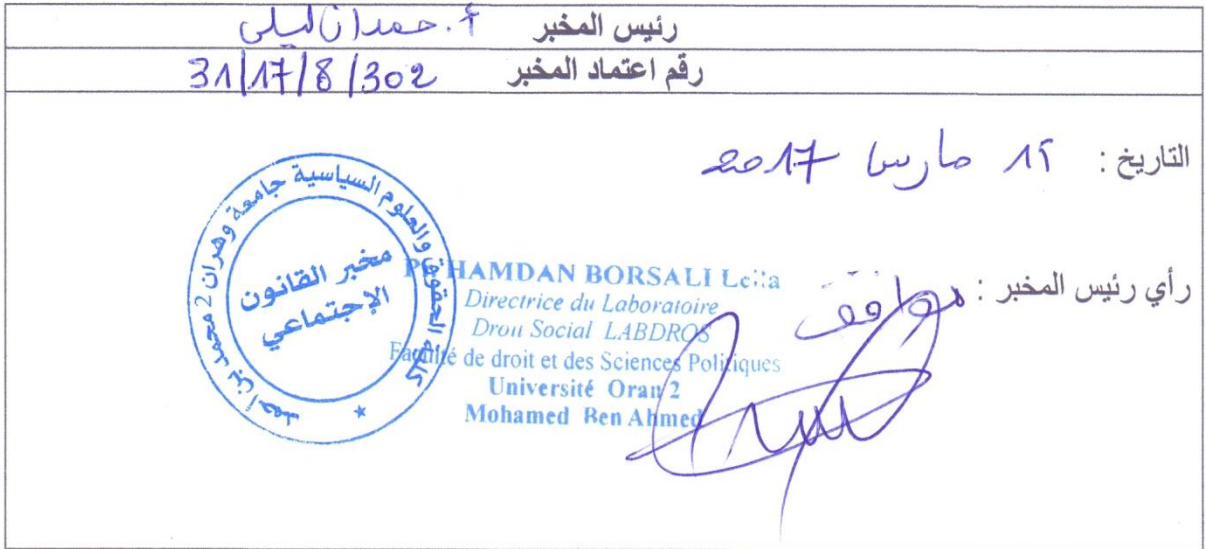 رئيس المخبر أ. حمدان ليلى
رقم اعتماد المخبر 31/17/8/302
التاريخ : 12 مارس 2017
رأي رئيس المخبر : موافقة
كلية الحقوق والعلوم السياسية جامعة وهران 2 محمد بن أحمد
مخبر القانون
الإجتماعي
Pr HAMDAN BORSALI Leila
Directrice du Laboratoire
Droit Social LABDROS
Faculté de droit et des Sciences Politiques
Université Oran 2
Mohamed Ben Ahmed